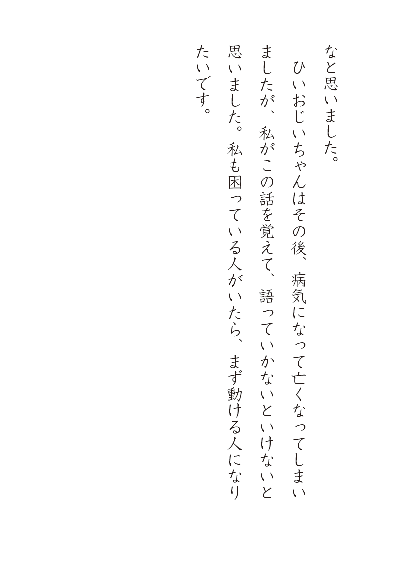 なと思いました。
　ひいおじいちゃんはその後、病気になって亡くなってしまい
ましたが、私がこの話を覚えて、語っていかないといけないと
思いました。私も困っている人がいたら、まず動ける人になり
たいです。